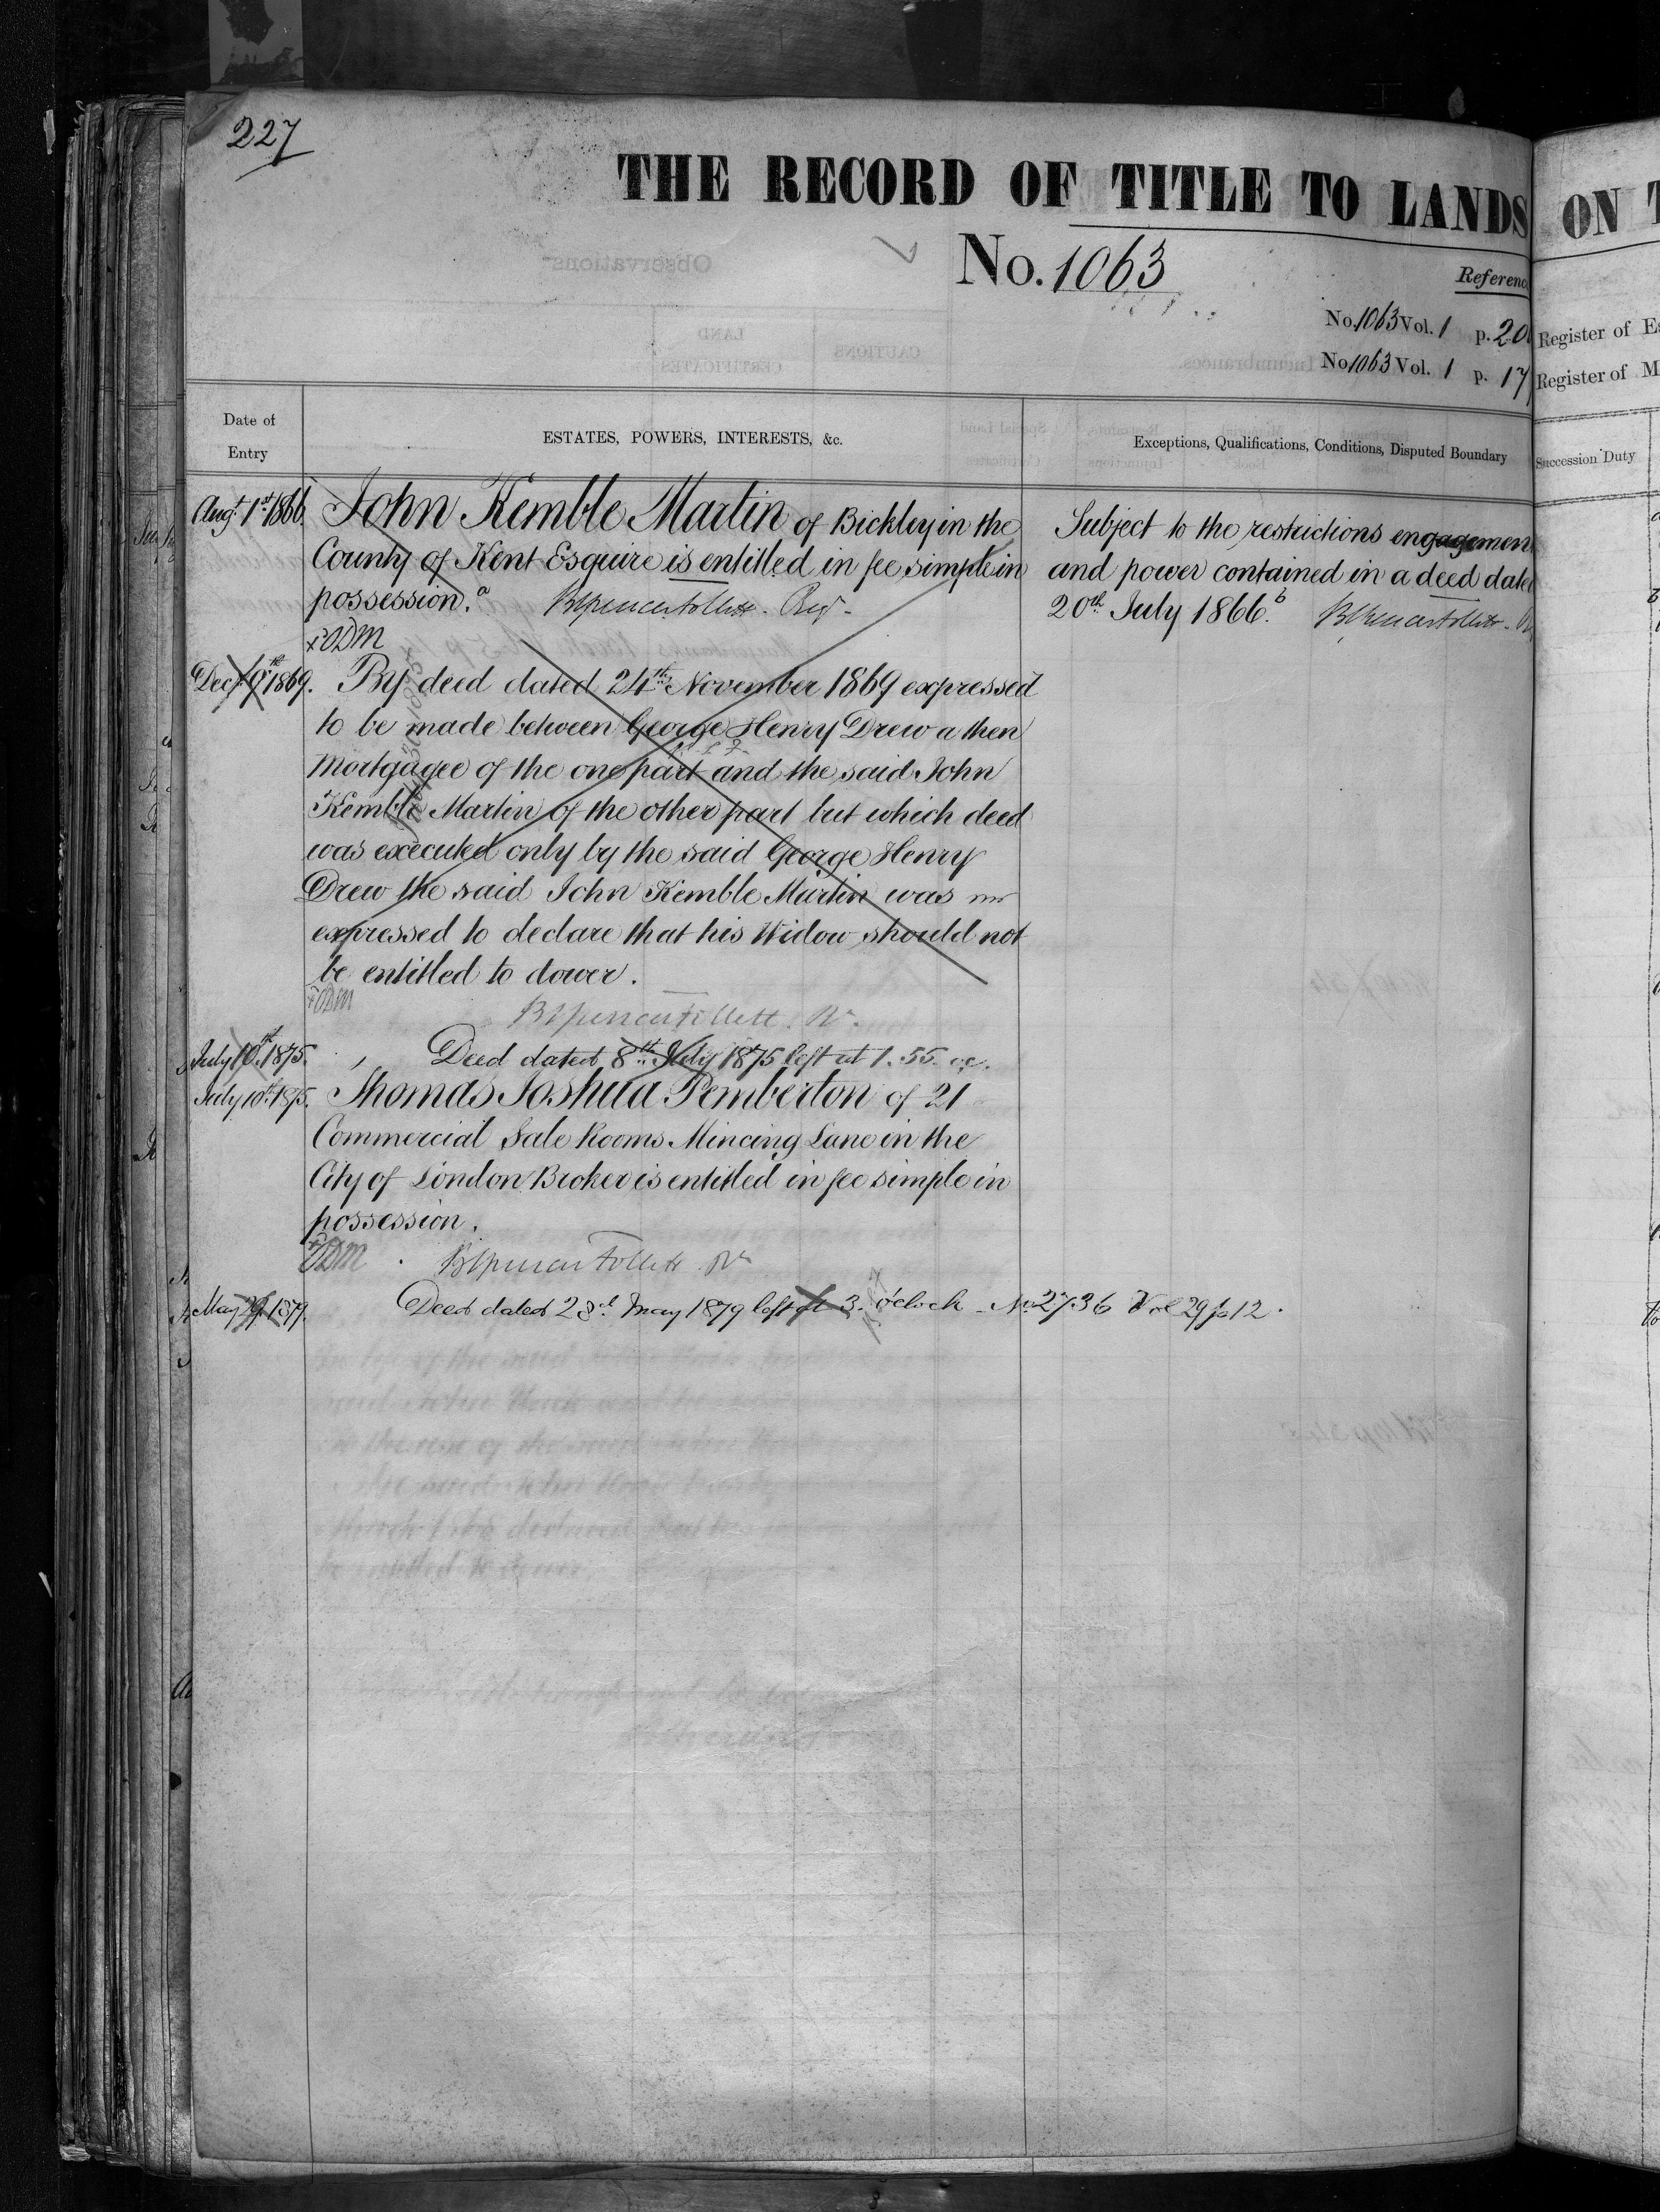 227
THE RECORD OF TITLE TO LANDS
ON T
No. 1063
Referenc
No. 1063 Vol. 1 p. 20
Register of Es
No 1063 Vol. 1 p. 17
Register of M
Date of
Entry
ESTATES, POWERS, INTERESTS, &c.
Exceptions, Qualifications, Conditions, Disputed Boundary
Succession Duty
Augt. 1st 1866. John Kemble Martin of Bickley in the
County of Kent Esquire is entitled in fee simple in
possession.a BSpencer Follett. Regr.
ODM
Subject to the restrictions engagemen
and power contained in a deed date
20th July 1866.b BSpencer Follett.
Decr. 9th 1869. By deed dated 24th November 1869 expressed
to be made between George Henry Drew a then
Mortgagee of the one part and the said John
Kemble Martin of the other part but which deed
was executed only by the said George Henry
Drew the said John Kemble Martin was
expressed to declare that his Widow should not
be entitled to dower.
ODM
BSpencer Follett. Rr.
July 10th 1875. Deed dated 8th July 1875 left at 1.55 oc.
July 10th 1875. Thomas Joshua Pemberton of 21
Commercial Sale Rooms Mincing Lane in the
City of London Broker is entitled in fee simple in
possession.
ODM BSpencer Follett Rr
May 29. 1879. Deed dated 28d. May 1879 left at 3. o'clock - No. 2736 Vol 29 p 12.